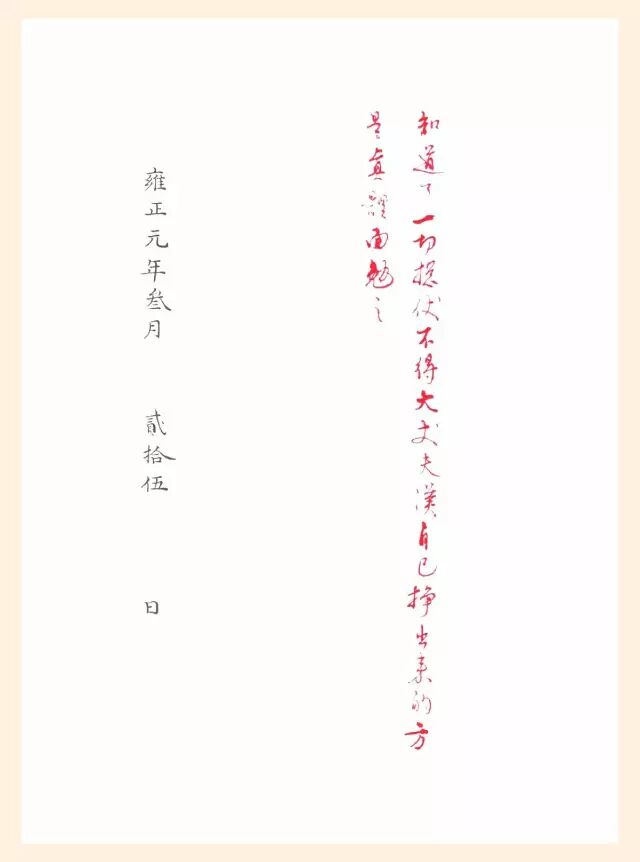 知道了一切捴仗不得大丈夫漢自己挣出来的方
是真體面勉之
雍正元年叁月 貳拾伍 日